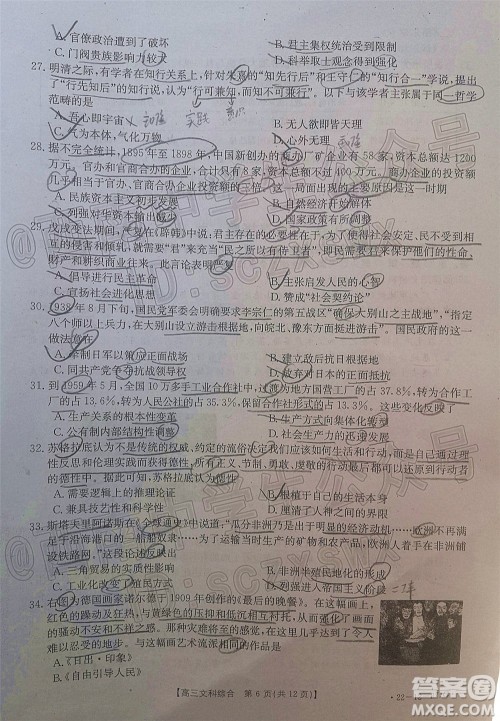 A. 官僚政治遭到了破坏 B. 君主集权统治受到限制
C. 门阀贵族影响力较大 D. 科举取士观念得到强化
27. 明清之际，有学者在知行关系上，针对朱熹的“知先行后”和王守仁的“知行合一”学说，提出
了“行先知后”的知行新说，认为“行可兼知，而知不可兼行”。以下与该学者主张属于同一哲学
范畴的是
A. 吾心即宇宙 B. 人欲即皆天理
C. 气为本体，气化万物 D. 心外无理
实践
28. 据不完全统计，1895年至1898年，中国新创办的 厂矿企业有58家，资本总额达1200
万元。官办和官商合办的企业，合计只有8家，资本总额不过400万元。民办企业的投资额
几乎相当于官办、官商合办企业投资额的三倍。这一局面出现的主要原因是这一时期
A. 民族资本主义初步发展 B. 自然经济开始解体
C. 列强对华资本输出减少 D. 国家政策发生调整
29. 戊戌变法期间，严复在《辟韩》中认为，在优胜劣汰的时代，为了使得社会安定、人民不受到相
互的侵害和倾轧，就需要“君”来充当“民之所以有待卫者”，即人民需要君主来保护他们的性命、
财产和耕织商业的往来。由此可见，严复意在
A. 倡导进行民主革命 B. 主张启发人民的心智
C. 宣扬社会进化思想 D. 赞成“社会契约论”
30. 1938年8月下旬，国民党军委会明确要求李宗仁的第五战区“确保大别山之主战地”，“指定
八个师以上兵力，在大别山设立游击根据地，向皖北、豫东方面挺进游击”。国民政府的这一
做法意在
A. 牵制日军以策应正面战场 B. 建立敌后抗日根据地
C. 同共产党争夺抗战领导权 D. 放弃对日本的正面战场
31. 到1959年5月，全国10万多个手工业合作社中，转为地方国营工厂的占37.8%，转为合作工
厂的占13.6%，转为人民公社工厂的占35.3%，保留合作社形式的占13.3%。这些变化反映了
A. 生产关系的根本性变革 B. 生产方式向集体化转型
C. 公有制内部结构性调整 D. 社会主义建设成就突出
32. 苏格拉底认为不是传统的权威、约定的流俗决定我们何以为人，而是每个人都可以通过理
性反思和伦理实践而获得德性，过有德性的生活，高贵、勇敢、虔敬的行动最终都可以还原到行动者
的德性中。由此可见，苏格拉底认为德性
A. 需要逻辑上的推理论证 B. 根植于人的生活本身
C. 兼具技艺性和实用性 D. 厘清了人的界限
33. 斯塔夫里阿诺斯在《全球通史》中说道：“瓜分非洲乃是出于明显的经济动机……欧洲不再满
足于沿海港口的一船船奴隶……为了运输当时所生产的矿物和农产品，欧洲人着手在非洲铺
设铁路网。”这段叙述反映出
A. 三角贸易的实质性影响 B. 非洲半殖民地化的形成
C. 工业化改变了殖民方式 D. 列强进入帝国主义阶段
34. 右图为德国画家诺尔德于1909年创作的《最后的晚餐》。在这幅画上，
红色的躁动及狂热，与黄绿色的压抑和低沉相互衬托，从而强化了画面情
绪的骚动不安和不祥之感。那种灾难将至的感觉，由此在这里几乎达到了令人
难以自制的地步。与这幅画艺术风格相似的是
A.《日出·印象》
【高三文科综合 第6页（共12页）】 ·22-